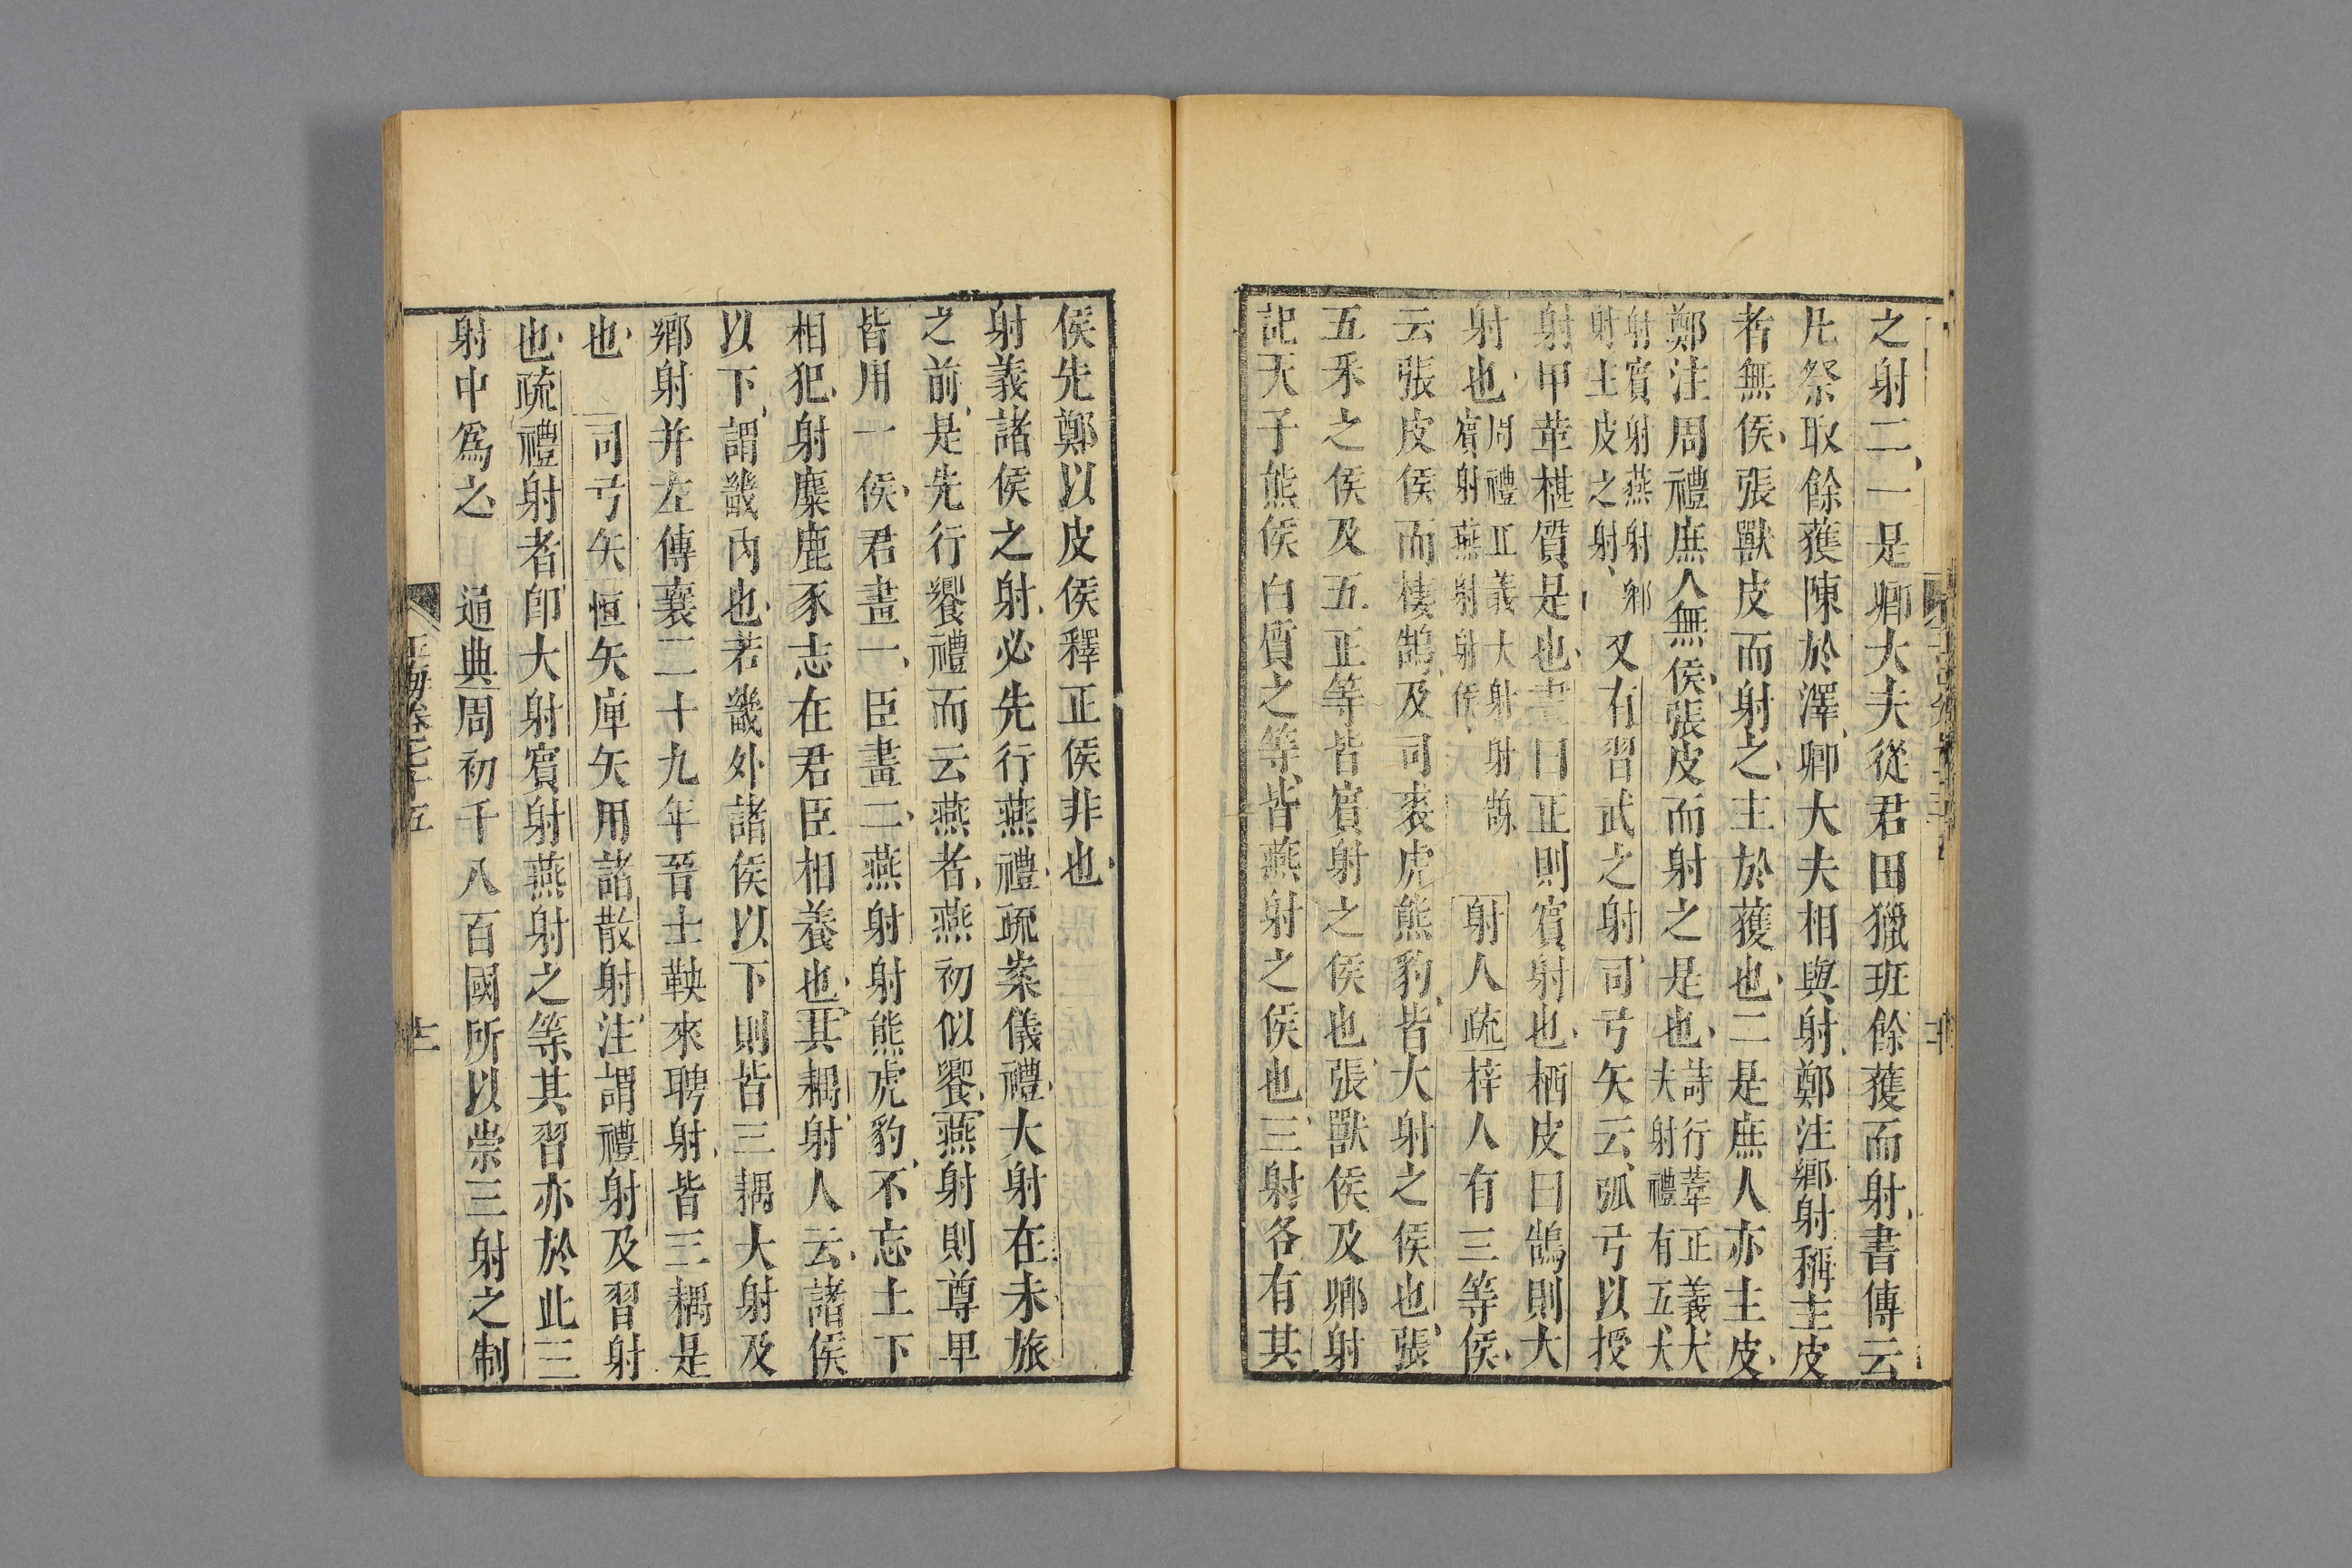 之射二一是卿大夫從君田獵班餘獲而射書傳云
凡祭取餘獲陳於澤卿大夫相與射鄭注鄉射稱主皮
者無侯張獸皮而射之主於獲也二是庶人亦主皮
鄭注周禮庶人無侯張皮而射之是也詩行葦正義大
夫射禮有五大
射賓射燕射鄉
射主皮之射又有習武之射司弓矢云弧弓以授
射甲革椹質是也畫曰正則賓射也栖皮曰鵠則大
射也周禮正義大射射鵠
賓射燕射射侯射人疏梓人有三等侯
云張皮侯而棲鵠及司裘虎熊豹皆大射之侯也張
五采之侯及五正等皆賓射之侯也張獸侯及鄉射
記天子熊侯白質之等皆燕射之侯也三射各有其
侯先鄭以皮侯釋正侯非也
射義諸侯之射必先行燕禮疏案儀禮大射在未旅
之前是先行饗禮而云燕者燕初似饗燕射則尊卑
皆用一侯君畫一臣畫二燕射射熊虎豹不忘上下
相犯射麋鹿豕志在君臣相養也其耦射人云諸侯
以下謂畿內也若畿外諸侯以下則皆三耦大射及
鄉射并左傳襄二十九年晉士鞅來聘射皆三耦是
也司弓矢恒矢庳矢用諸散射注謂禮射及習射
也疏禮射者卽大射賓射燕射之等其習亦於此三
射中爲之通典周初千八百國所以崇三射之制
玉海卷七十五
十二